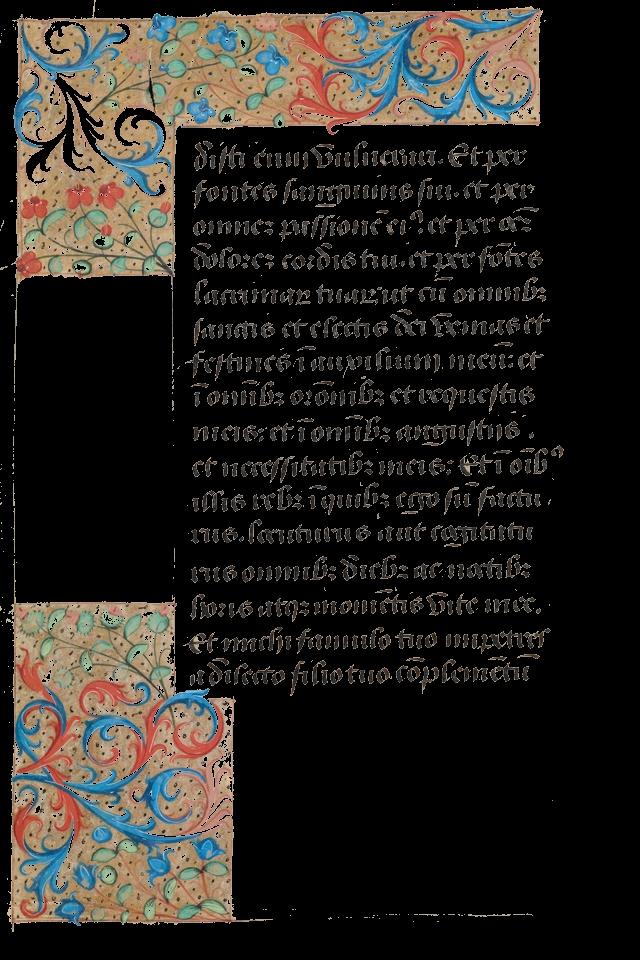 disti eum vulnerari. Et per
fontes sanguinis sui. et per
omnez passionē ei⁹. et per oēz
dolorez cordis tui. et per fōtes
lacrimarꝫ tuarꝫ ut cū omnibꝫ
sanctis et electis dei venias et
festines ī auxilium meū: et
ī omībꝫ orōnibꝫ et requestis
meis: et ī omībꝫ angustiis.
et necessitatibꝫ meis: Et ī oīb⁹
illis rebꝫ ī quibꝫ ego sū factu
rus. locuturus aut cogitatu
rus omnibꝫ diebꝫ ac noctibꝫ
horis atqꝫ momētis vite mee.
Et michi famulo tuo impetres
a dilecto filio tuo cōplemētū